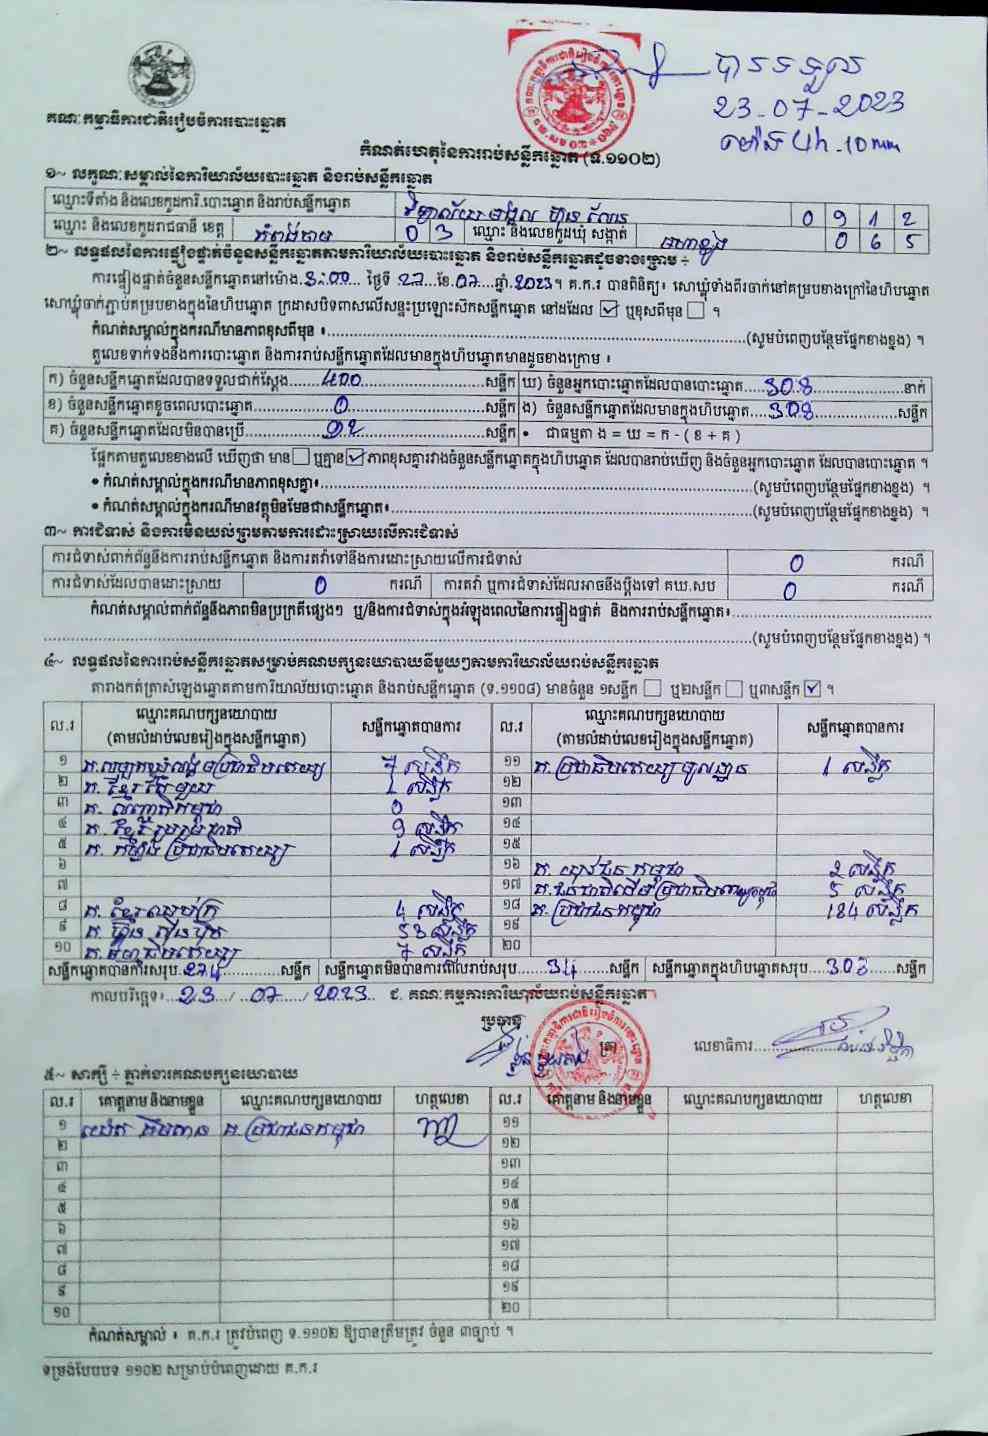 បានទទួល
23-07-2023
ម៉ោង 4h-10mm
គណៈកម្មាធិការជាតិរៀបចំការបោះឆ្នោត
កំណត់ហេតុនៃការរាប់សន្លឹកឆ្នោត (ទ.១១០២)
១~ លក្ខណៈសម្គាល់នៃការិយាល័យបោះឆ្នោត និងរាប់សន្លឹកឆ្នោត
ឈ្មោះទីតាំង និងលេខកូដការិ.បោះឆ្នោត និងរាប់សន្លឹកឆ្នោត វិទ្យាល័យ ហ៊ុន សែន 0 9 1 2
ឈ្មោះ និងលេខកូដរាជធានី ខេត្ត កំពង់ចាម 0 3 ឈ្មោះ និងលេខកូដឃុំ សង្កាត់ 0 6 5
២~ លទ្ធផលនៃការផ្ទៀងផ្ទាត់ចំនួនសន្លឹកឆ្នោតតាមការិយាល័យបោះឆ្នោត និងរាប់សន្លឹកឆ្នោតដូចខាងក្រោម ÷
ការផ្ទៀងផ្ទាត់ចំនួនសន្លឹកឆ្នោតនៅម៉ោង 3:00 ថ្ងៃទី 23 ខែ 07 ឆ្នាំ 2023។ គ.ក.រ បានពិនិត្យ៖ សោឃ្លុំទាំងពីរចាក់នៅគម្របខាងក្រៅនៃហិបឆ្នោត
សោឃ្លុំចាក់ភ្ជាប់គម្របខាងក្នុងនៃហិបឆ្នោត ក្រដាសបិទពាសលើសន្ទះប្រឡោះសិកសន្លឹកឆ្នោត នៅដដែល ☑ ឬខុសពីមុន ☐ ។
កំណត់សម្គាល់ក្នុងករណីមានភាពខុសពីមុន ៖ (សូមបំពេញបន្ថែមផ្នែកខាងខ្នង) ។
តួលេខទាក់ទងនឹងការបោះឆ្នោត និងការរាប់សន្លឹកឆ្នោតដែលមានក្នុងហិបឆ្នោតមានដូចខាងក្រោម ៖
ក) ចំនួនសន្លឹកឆ្នោតដែលបានទទួលជាក់ស្តែង 400 សន្លឹក ឃ) ចំនួនអ្នកបោះឆ្នោតដែលបានបោះឆ្នោត 308 នាក់
ខ) ចំនួនសន្លឹកឆ្នោតខូចពេលបោះឆ្នោត 0 សន្លឹក ង) ចំនួនសន្លឹកឆ្នោតដែលមានក្នុងហិបឆ្នោត 308 សន្លឹក
គ) ចំនួនសន្លឹកឆ្នោតដែលមិនបានប្រើ 92 សន្លឹក • ជាធម្មតា ង = ឃ = ក - ( ខ + គ )
ផ្អែកតាមតួលេខខាងលើ ឃើញថា មាន ☐ ឬគ្មាន ☑ ភាពខុសគ្នារវាងចំនួនសន្លឹកឆ្នោតក្នុងហិបឆ្នោត ដែលបានរាប់ឃើញ និងចំនួនអ្នកបោះឆ្នោត ដែលបានបោះឆ្នោត ។
• កំណត់សម្គាល់ក្នុងករណីមានភាពខុសគ្នា៖ (សូមបំពេញបន្ថែមផ្នែកខាងខ្នង) ។
• កំណត់សម្គាល់ក្នុងករណីមានវត្ថុមិនមែនជាសន្លឹកឆ្នោត៖ (សូមបំពេញបន្ថែមផ្នែកខាងខ្នង) ។
៣~ ការជំទាស់ និងការមិនយល់ព្រមតាមការដោះស្រាយលើការជំទាស់
ការជំទាស់ពាក់ព័ន្ធនឹងការរាប់សន្លឹកឆ្នោត និងការតវ៉ាទៅនឹងការដោះស្រាយលើការជំទាស់ 0 ករណី
ការជំទាស់ដែលបានដោះស្រាយ 0 ករណី ការតវ៉ា ឬការជំទាស់ដែលអាចនឹងប្តឹងទៅ គឃ.សប 0 ករណី
កំណត់សម្គាល់ពាក់ព័ន្ធនឹងភាពមិនប្រក្រតីផ្សេងៗ ឬ/និងការជំទាស់ក្នុងអំឡុងពេលនៃការផ្ទៀងផ្ទាត់ និងការរាប់សន្លឹកឆ្នោត៖
(សូមបំពេញបន្ថែមផ្នែកខាងខ្នង) ។
៤~ លទ្ធផលនៃការរាប់សន្លឹកឆ្នោតសម្រាប់គណបក្សនយោបាយនីមួយៗតាមការិយាល័យរាប់សន្លឹកឆ្នោត
តារាងកត់ត្រាសំឡេងឆ្នោតតាមការិយាល័យបោះឆ្នោត និងរាប់សន្លឹកឆ្នោត (ទ.១១០៨) មានចំនួន ១សន្លឹក ☐ ឬ២សន្លឹក ☐ ឬ៣សន្លឹក ☑ ។
ល.រ ឈ្មោះគណបក្សនយោបាយ (តាមលំដាប់លេខរៀងក្នុងសន្លឹកឆ្នោត) សន្លឹកឆ្នោតបានការ ល.រ ឈ្មោះគណបក្សនយោបាយ (តាមលំដាប់លេខរៀងក្នុងសន្លឹកឆ្នោត) សន្លឹកឆ្នោតបានការ
១ គ.សម្បុកឃ្មុំសង្គមប្រជាធិបតេយ្យ 7 សន្លឹក ១១ គ.ប្រជាធិបតេយ្យមូលដ្ឋាន 1 សន្លឹក
២ គ.ខ្មែរតែមួយ 1 សន្លឹក ១២
៣ គ. សញ្ជាតិកម្ពុជា 0 ១៣
៤ គ. ខ្មែររួបរួមជាតិ 9 សន្លឹក ១៤
៥ គ. កម្លាំងប្រជាធិបតេយ្យ 1 សន្លឹក ១៥
៦ ១៦ គ. យុវជនកម្ពុជា 2 សន្លឹក
៧ ១៧ គ.ជនជាតិដើមប្រជាធិបតេយ្យកម្ពុជា 5 សន្លឹក
៨ គ. ខ្មែរឈប់ក្រ 4 សន្លឹក ១៨ គ.ប្រជាជនកម្ពុជា 184 សន្លឹក
៩ គ. ហ៊្វុនស៊ិនប៉ិច 53 សន្លឹក ១៩
១០ គ.ធម្មាធិបតេយ្យ 7 សន្លឹក ២០
សន្លឹកឆ្នោតបានការសរុប 274 សន្លឹក សន្លឹកឆ្នោតមិនបានការពេលរាប់សរុប 34 សន្លឹក សន្លឹកឆ្នោតក្នុងហិបឆ្នោតសរុប 308 សន្លឹក
កាលបរិច្ឆេទ៖ 23 / 07 / 2023 ជ. គណៈកម្មការការិយាល័យរាប់សន្លឹកឆ្នោត
ប្រធាន ត្រា លេខាធិការ
៥~ សាក្សី ÷ ភ្នាក់ងារគណបក្សនយោបាយ
ល.រ គោត្តនាម និងនាមខ្លួន ឈ្មោះគណបក្សនយោបាយ ហត្ថលេខា ល.រ គោត្តនាម និងនាមខ្លួន ឈ្មោះគណបក្សនយោបាយ ហត្ថលេខា
១ គ.ប្រជាជនកម្ពុជា ១១
២ ១២
៣ ១៣
៤ ១៤
៥ ១៥
៦ ១៦
៧ ១៧
៨ ១៨
៩ ១៩
១០ ២០
កំណត់សម្គាល់ ៖ គ.ក.រ ត្រូវបំពេញ ទ.១១០២ ឱ្យបានត្រឹមត្រូវ ចំនួន ៣ច្បាប់ ។
ទម្រង់បែបបទ ១១០២ សម្រាប់បំពេញដោយ គ.ក.រ